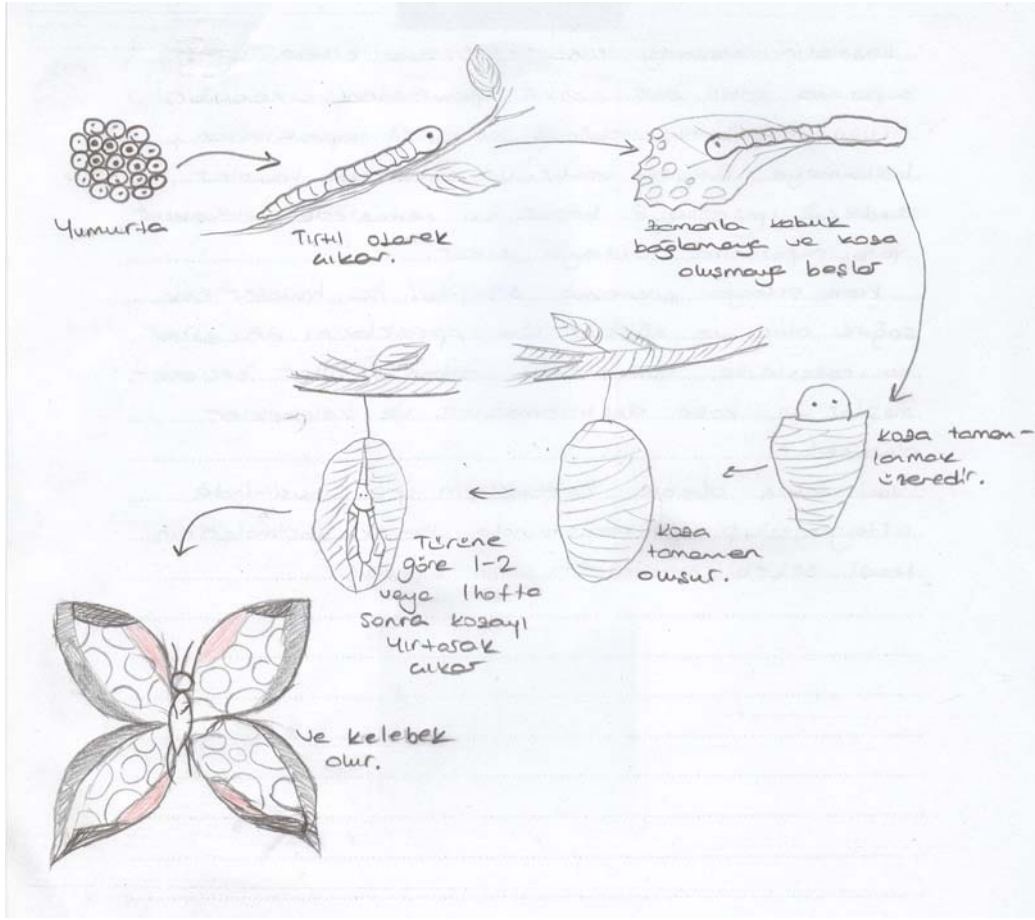 Yumurta
Tırtıl olarak
çıkar.
zamanla kabuk
bağlamaya ve koza
oluşmaya başlar
koza tamam-
lanmak
üzeredir.
koza
tamamen
oluşur.
Türüne
göre 1-2
veya 1 hafta
sonra kozayı
yırtarak
çıkar
ve kelebek
olur.